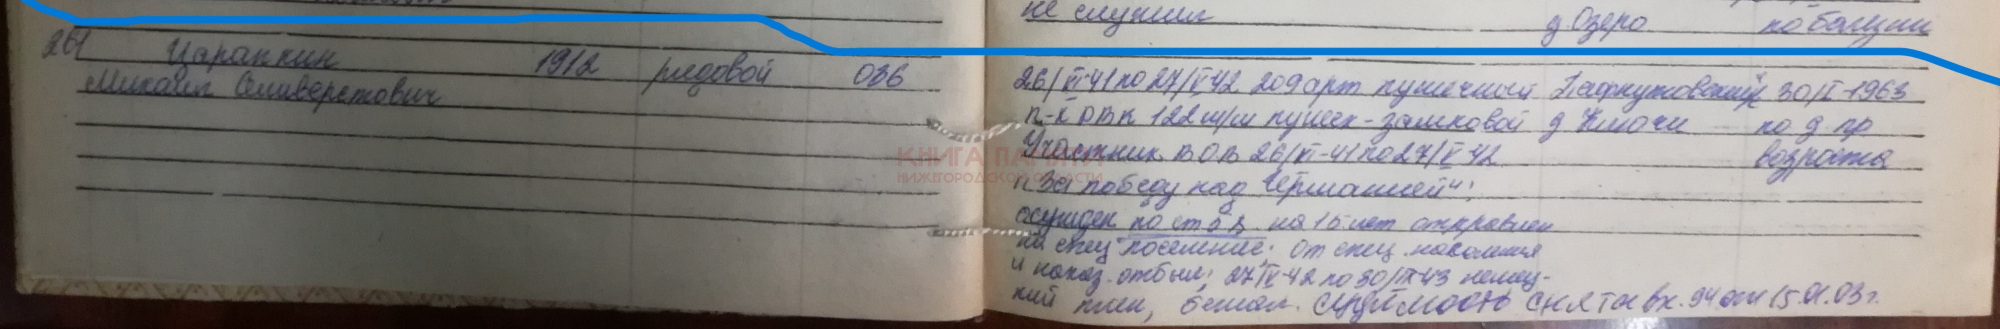 не служил д Озеро по болезни
261 Царапкин 1912 рядовой 036
Михаил Селиверстович
26/VI-41 по 27/V-42 209 арт пушечный Пафнутовский 30/I-1963
п-к РВК 122 м/м пушек-замковой д Ключи по д пр
Участник ВОВ 26/VI-41 по 27/V-42 возраста
КНИГА ПАМЯТИ
НИЖЕГОРОДСКОЙ ОБЛАСТИ
"За победу над Германией";
осужден по ст 58 на 15 лет отправлен
на спец поселение; От спец.
и наказ. отбыл; 27/V-42 по 30/IX-43 немец-
кий плен, бежал. Судимость снята вх. 94 от 15.01.03г.